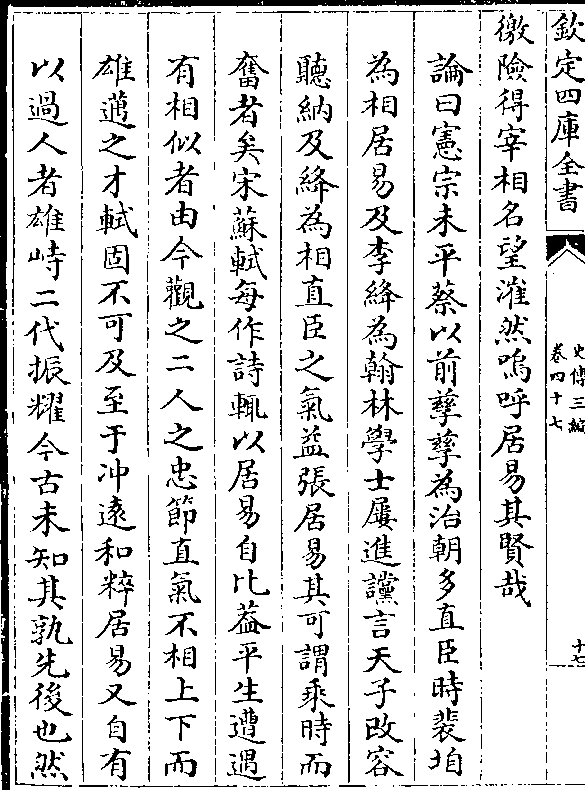 欽定四庫全書
史傳三編
卷四十七
十七
徼險得宰相名望漼然嗚呼居易其賢哉
論曰憲宗未平蔡以前孳孳為治朝多直臣時裴垍
為相居易及李絳為翰林學士屢進讜言天子改容
聽納及絳為相直臣之氣益張居易其可謂乘時而
奮者矣宋蘇軾每作詩輒以居易自比葢平生遭遇
有相似者由今觀之二人之忠節直氣不相上下而
雄邁之才軾固不可及至于冲逺和粹居易又自有
以過人者雄峙二代振耀今古未知其孰先後也然